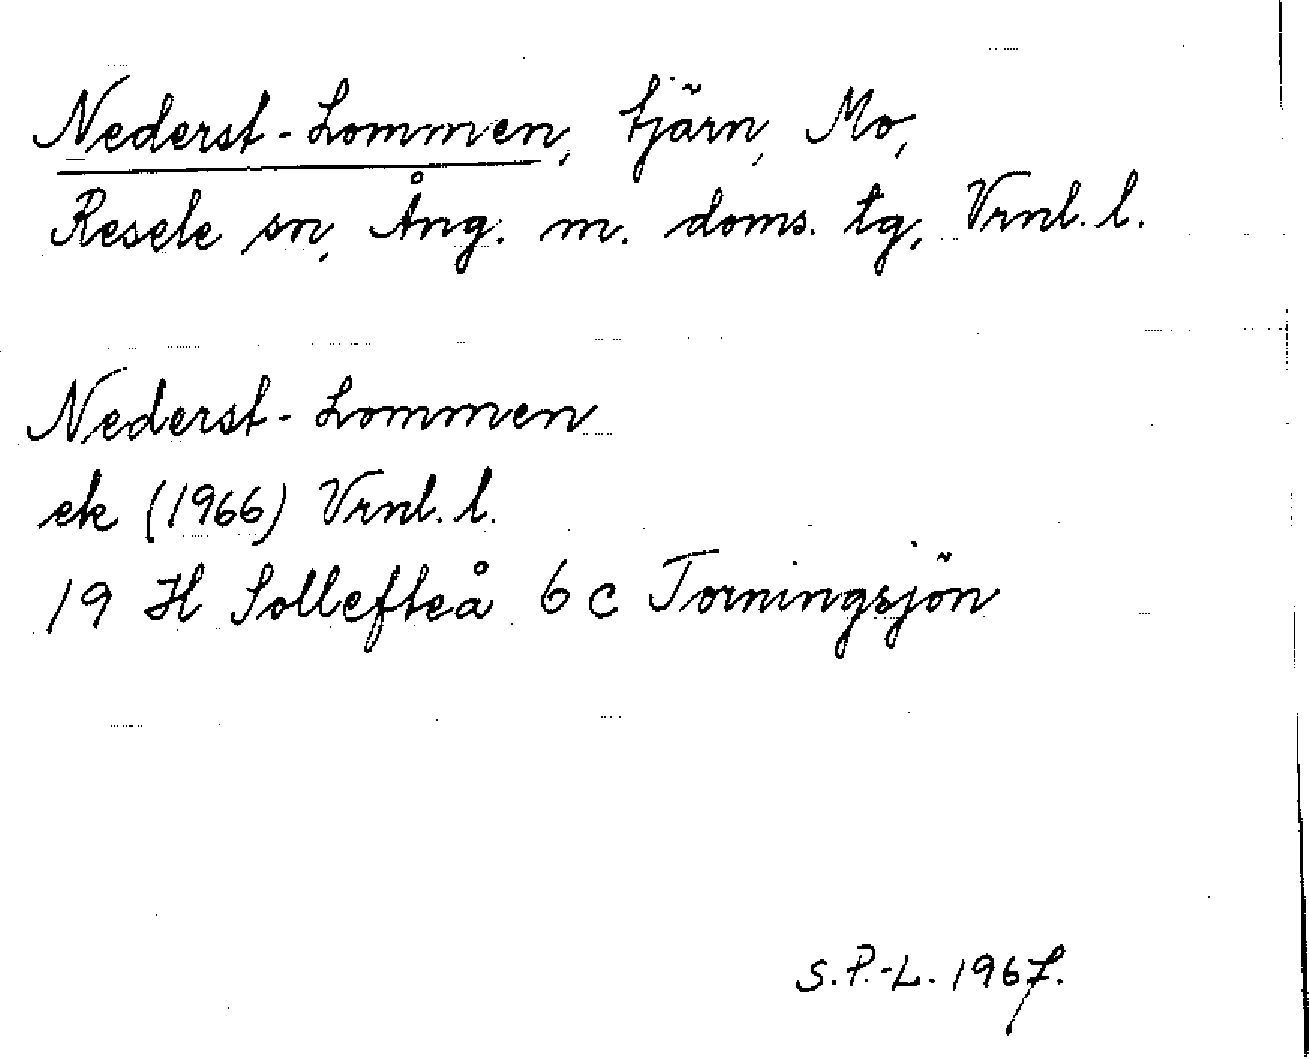 Nederst-Lommen, tjärn, Mo,
Resele sn, Ång. m. doms. tg, Vrnl. l.
Nederst-Lommen
ek (1966) Vrnl. l.
19 H Sollefteå 6 c Torningsjön
S. P.-L. 1967.